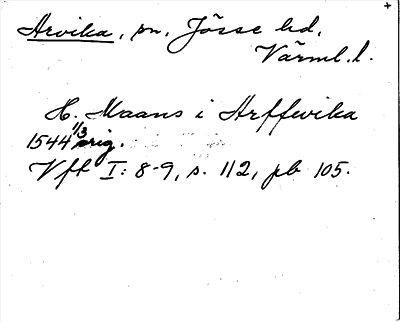 Arvika, sn, Jösse hd,
Värml. l.
H. Maans i Arffwika
1544 1/3 orig.
Vfk I: 8-9, s. 112, pb 105.